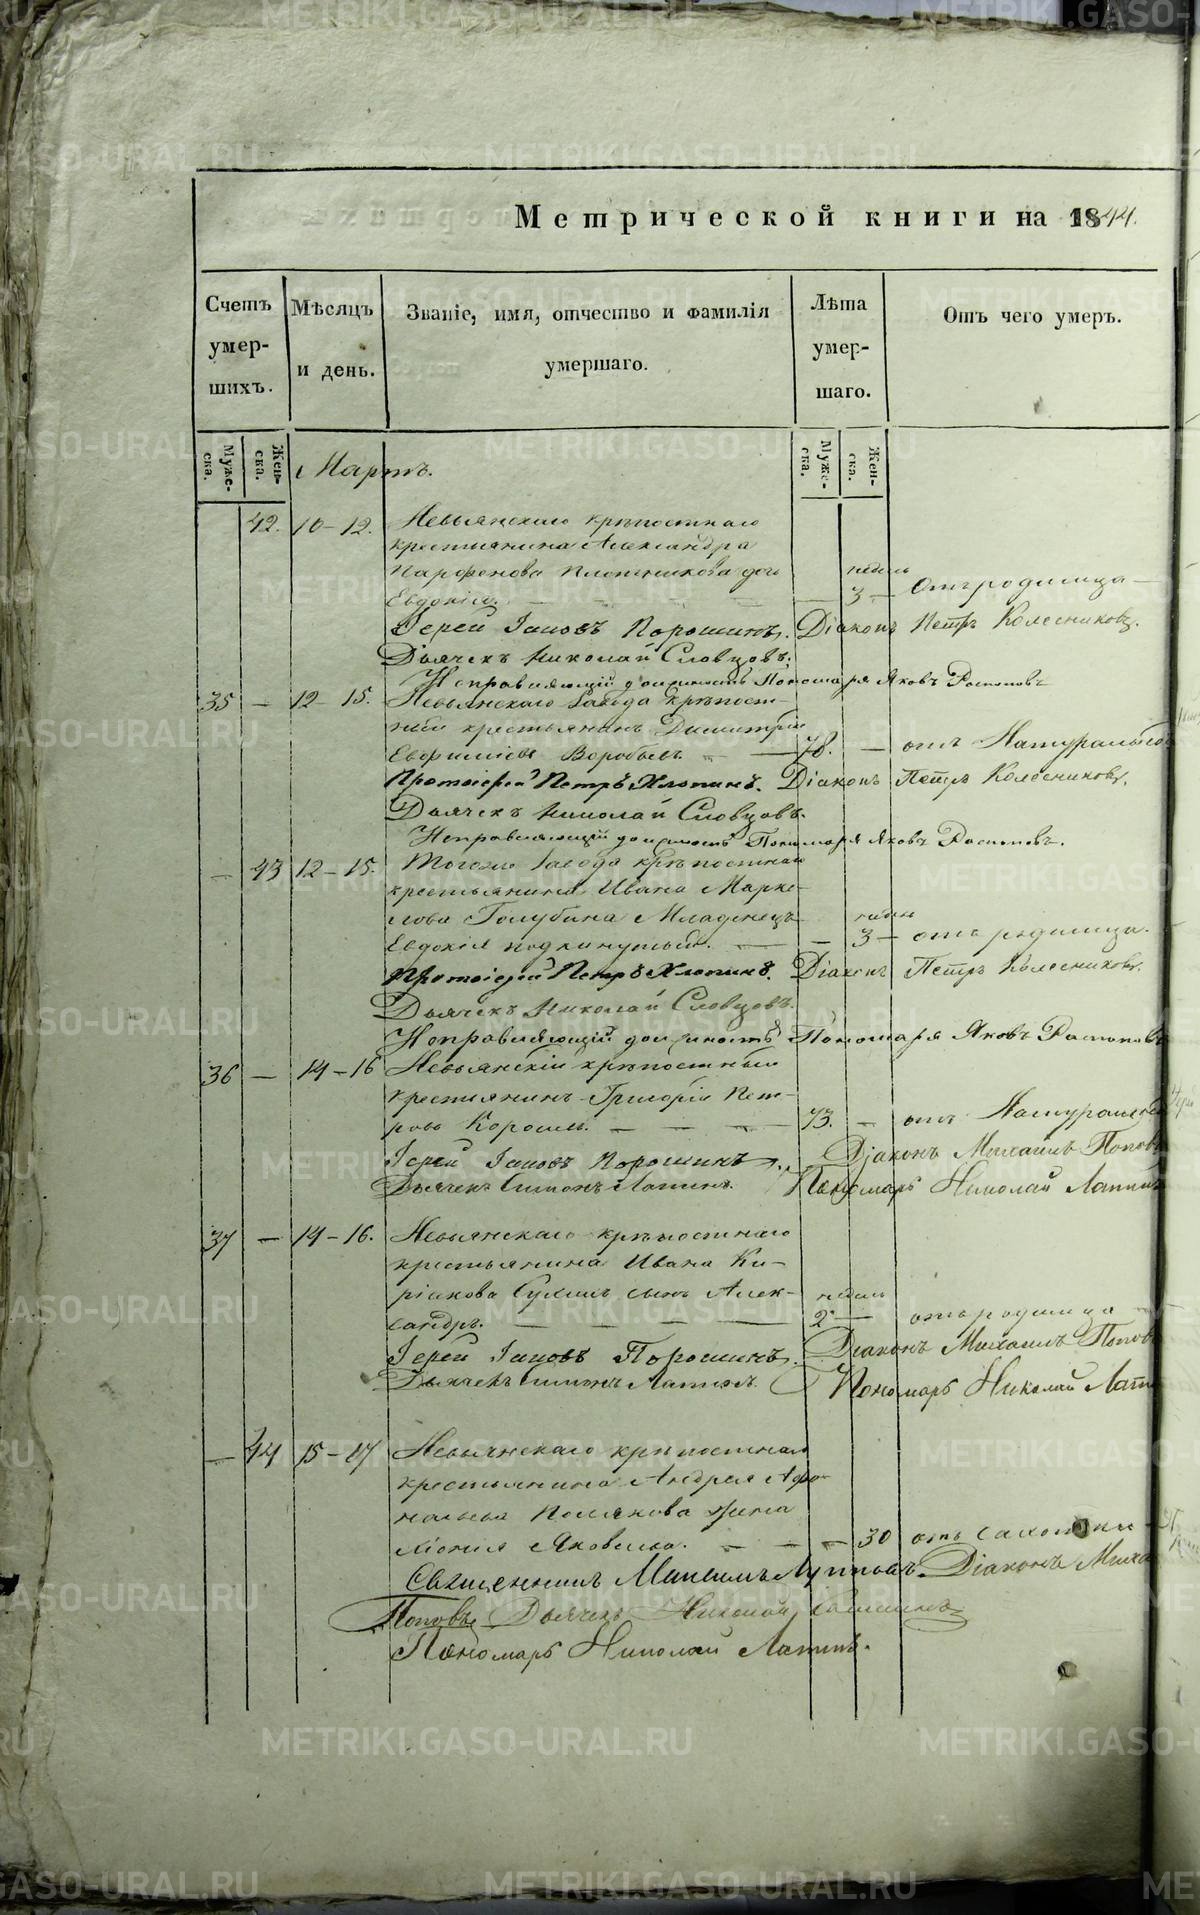 Метрической книги на 1844.
Счетъ умер-шихъ.
Мѣсяцъ и день.
Званіе, имя, отчество и фамилія умершаго.
Лѣта умер-шаго.
Отъ чего умеръ.
Муже-ска.
Жен-ска.
Мартъ.
Муже-ска.
Жен-ска.
42. 10-12. Невьянскаго крѣпостнаго
крестьянина Александра
Парфенова Плотникова дочь недель
Евдокія. 3 — Отъ родимца —
Іерей Іаковъ Порошинъ. Діаконъ Петръ Колесниковъ.
Дьячекъ Николай Словцовъ.
Исправляющій должность Пономаря Яковъ
35 — 12-15. Невьянскаго завода крѣпост-
ный крестьянинъ Димитрій
Евфиміевъ Воробьевъ. — 78. — отъ Натуральной
Протоіерей Петръ Хлопинъ. Діаконъ Петръ Колесниковъ.
Дьячекъ Николай Словцовъ.
Исправляющій должность Пономаря Яковъ
— 43 12-15. Тогоже завода крѣпостнаго
крестьянина Ивана Марке-
лова Голубина Младенецъ недель
Евдокія подкинутый. — — 3 — отъ родимца.
Протоіерей Петръ Хлопинъ. Діаконъ Петръ Колесниковъ.
Дьячекъ Николай Словцовъ.
Исправляющій должность Пономаря Яковъ
36 — 14-16 Невьянскій крѣпостный
крестьянинъ Григорій Пет-
ровъ — — — 73. — отъ Натуральной
Іерей Іаковъ Порошинъ. Діаконъ Михаилъ Поповъ
Дьячекъ Симонъ Лапинъ. Пономарь Николай Лапинъ
37 — 14-16. Невьянскаго крѣпостнаго
крестьянина Ивана Ки-
ріакова сынъ Алек- недель
сандръ. — — — 2 — отъ родимца
Іерей Іаковъ Порошинъ. Діаконъ Михаилъ Поповъ
Дьячекъ Симонъ Лапинъ. Пономарь Николай Лапи
— 44 15-17 Невьянскаго крѣпостнаго
крестьянина Андрея Афо-
насьева Полякова жена
Яковлева. — — — 30 отъ
Священникъ Максимъ Лупповъ. Діаконъ Миха
Поповъ Дьячекъ Николай
Пономарь Николай Лапинъ.
METRIKI.GASO-URAL.RU